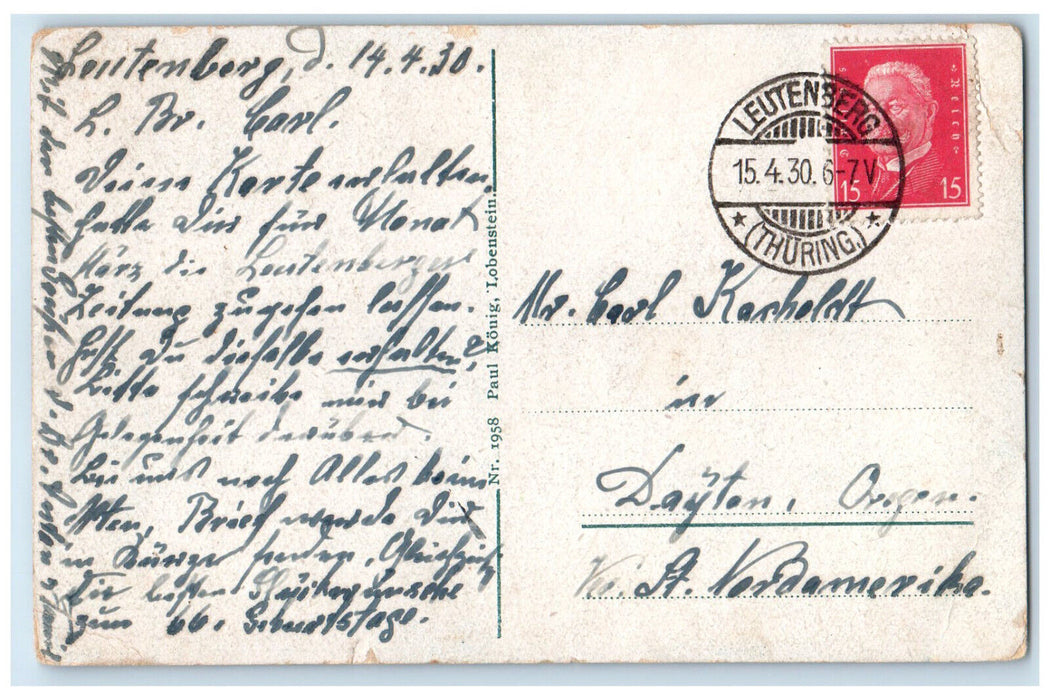 Leutenberg, d. 14.4.30.
L. Br. Carl.
Deine Karte erhalten,
hatte Dir für Monat
März die Leutenberger
Zeitung zugehen lassen.
Hast du dieselbe erhalten?
Bitte schreibe mir bei
Gelegenheit darüber.
Bei uns noch Alles beim
Alten, Brief werde Dir
in Kürze senden, Gleichzeitig
die besten Glückwünsche
zum 66. Geburtstage.
Mit den besten Grüßen d. Br.
Nr. 1958 Paul König, Lobenstein.
LEUTENBERG
15.4.30.6-7V
★ (THÜRING.) ★
Reich
15 15
Mr. Carl Kacholdt
in
Dayton, Oregon.
St. Nordamerika.